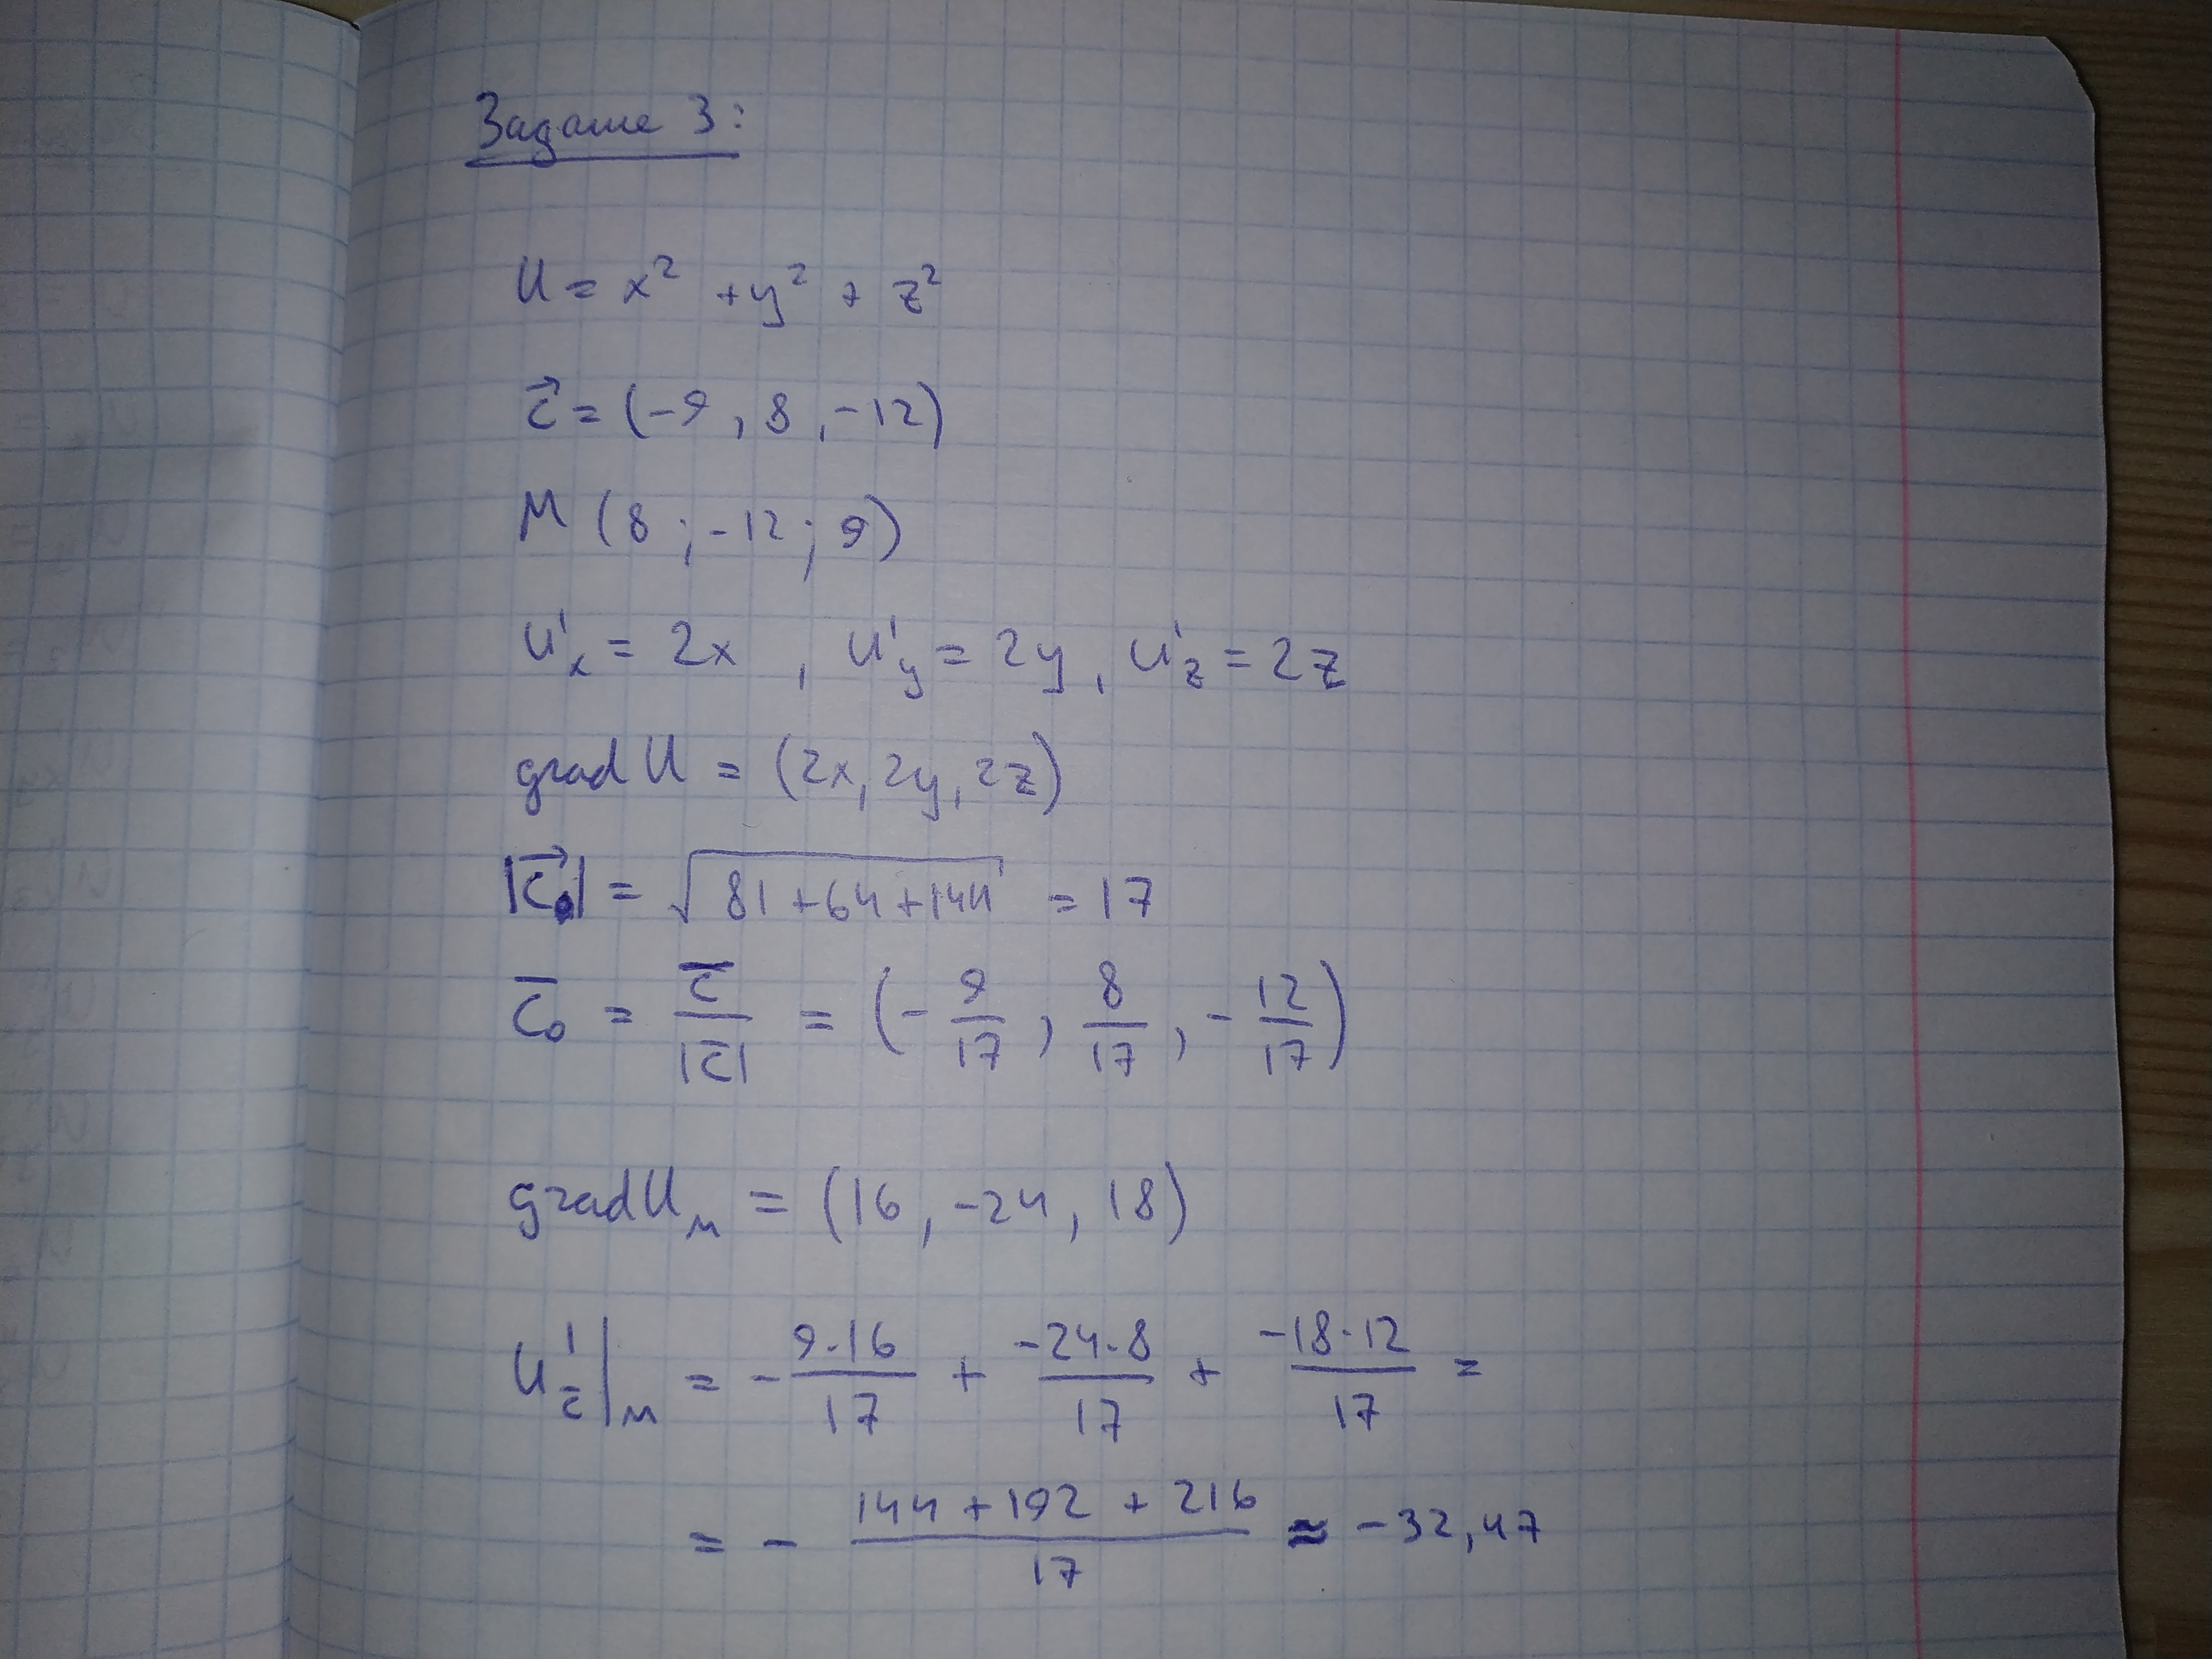 Задание 3:
U = x² + y² + z²
c⃗ = (-9, 8, -12)
M (8; -12; 9)
U'ₓ = 2x, U'_y = 2y, U'_z = 2z
grad U = (2x, 2y, 2z)
|c⃗₀| = √(81+64+144) = 17
c̄₀ = c̄/|c̄| = (-9/17, 8/17, -12/17)
grad U_M = (16, -24, 18)
U'_c̄|_M = - 9·16/17 + -24·8/17 + -18·12/17 =
= - (144+192+216)/17 ≈ -32,47